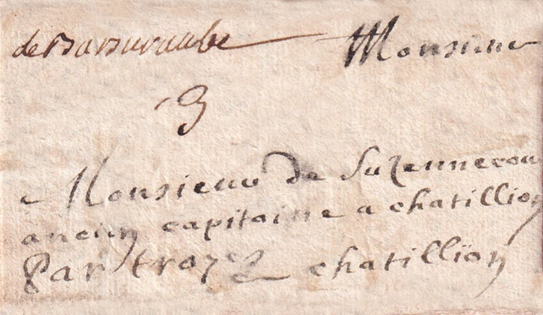 de Barsuraube
Monsieur
3
Monsieur de Suzennecou
ancien capitaine a chatillion
Par troyes chatillion